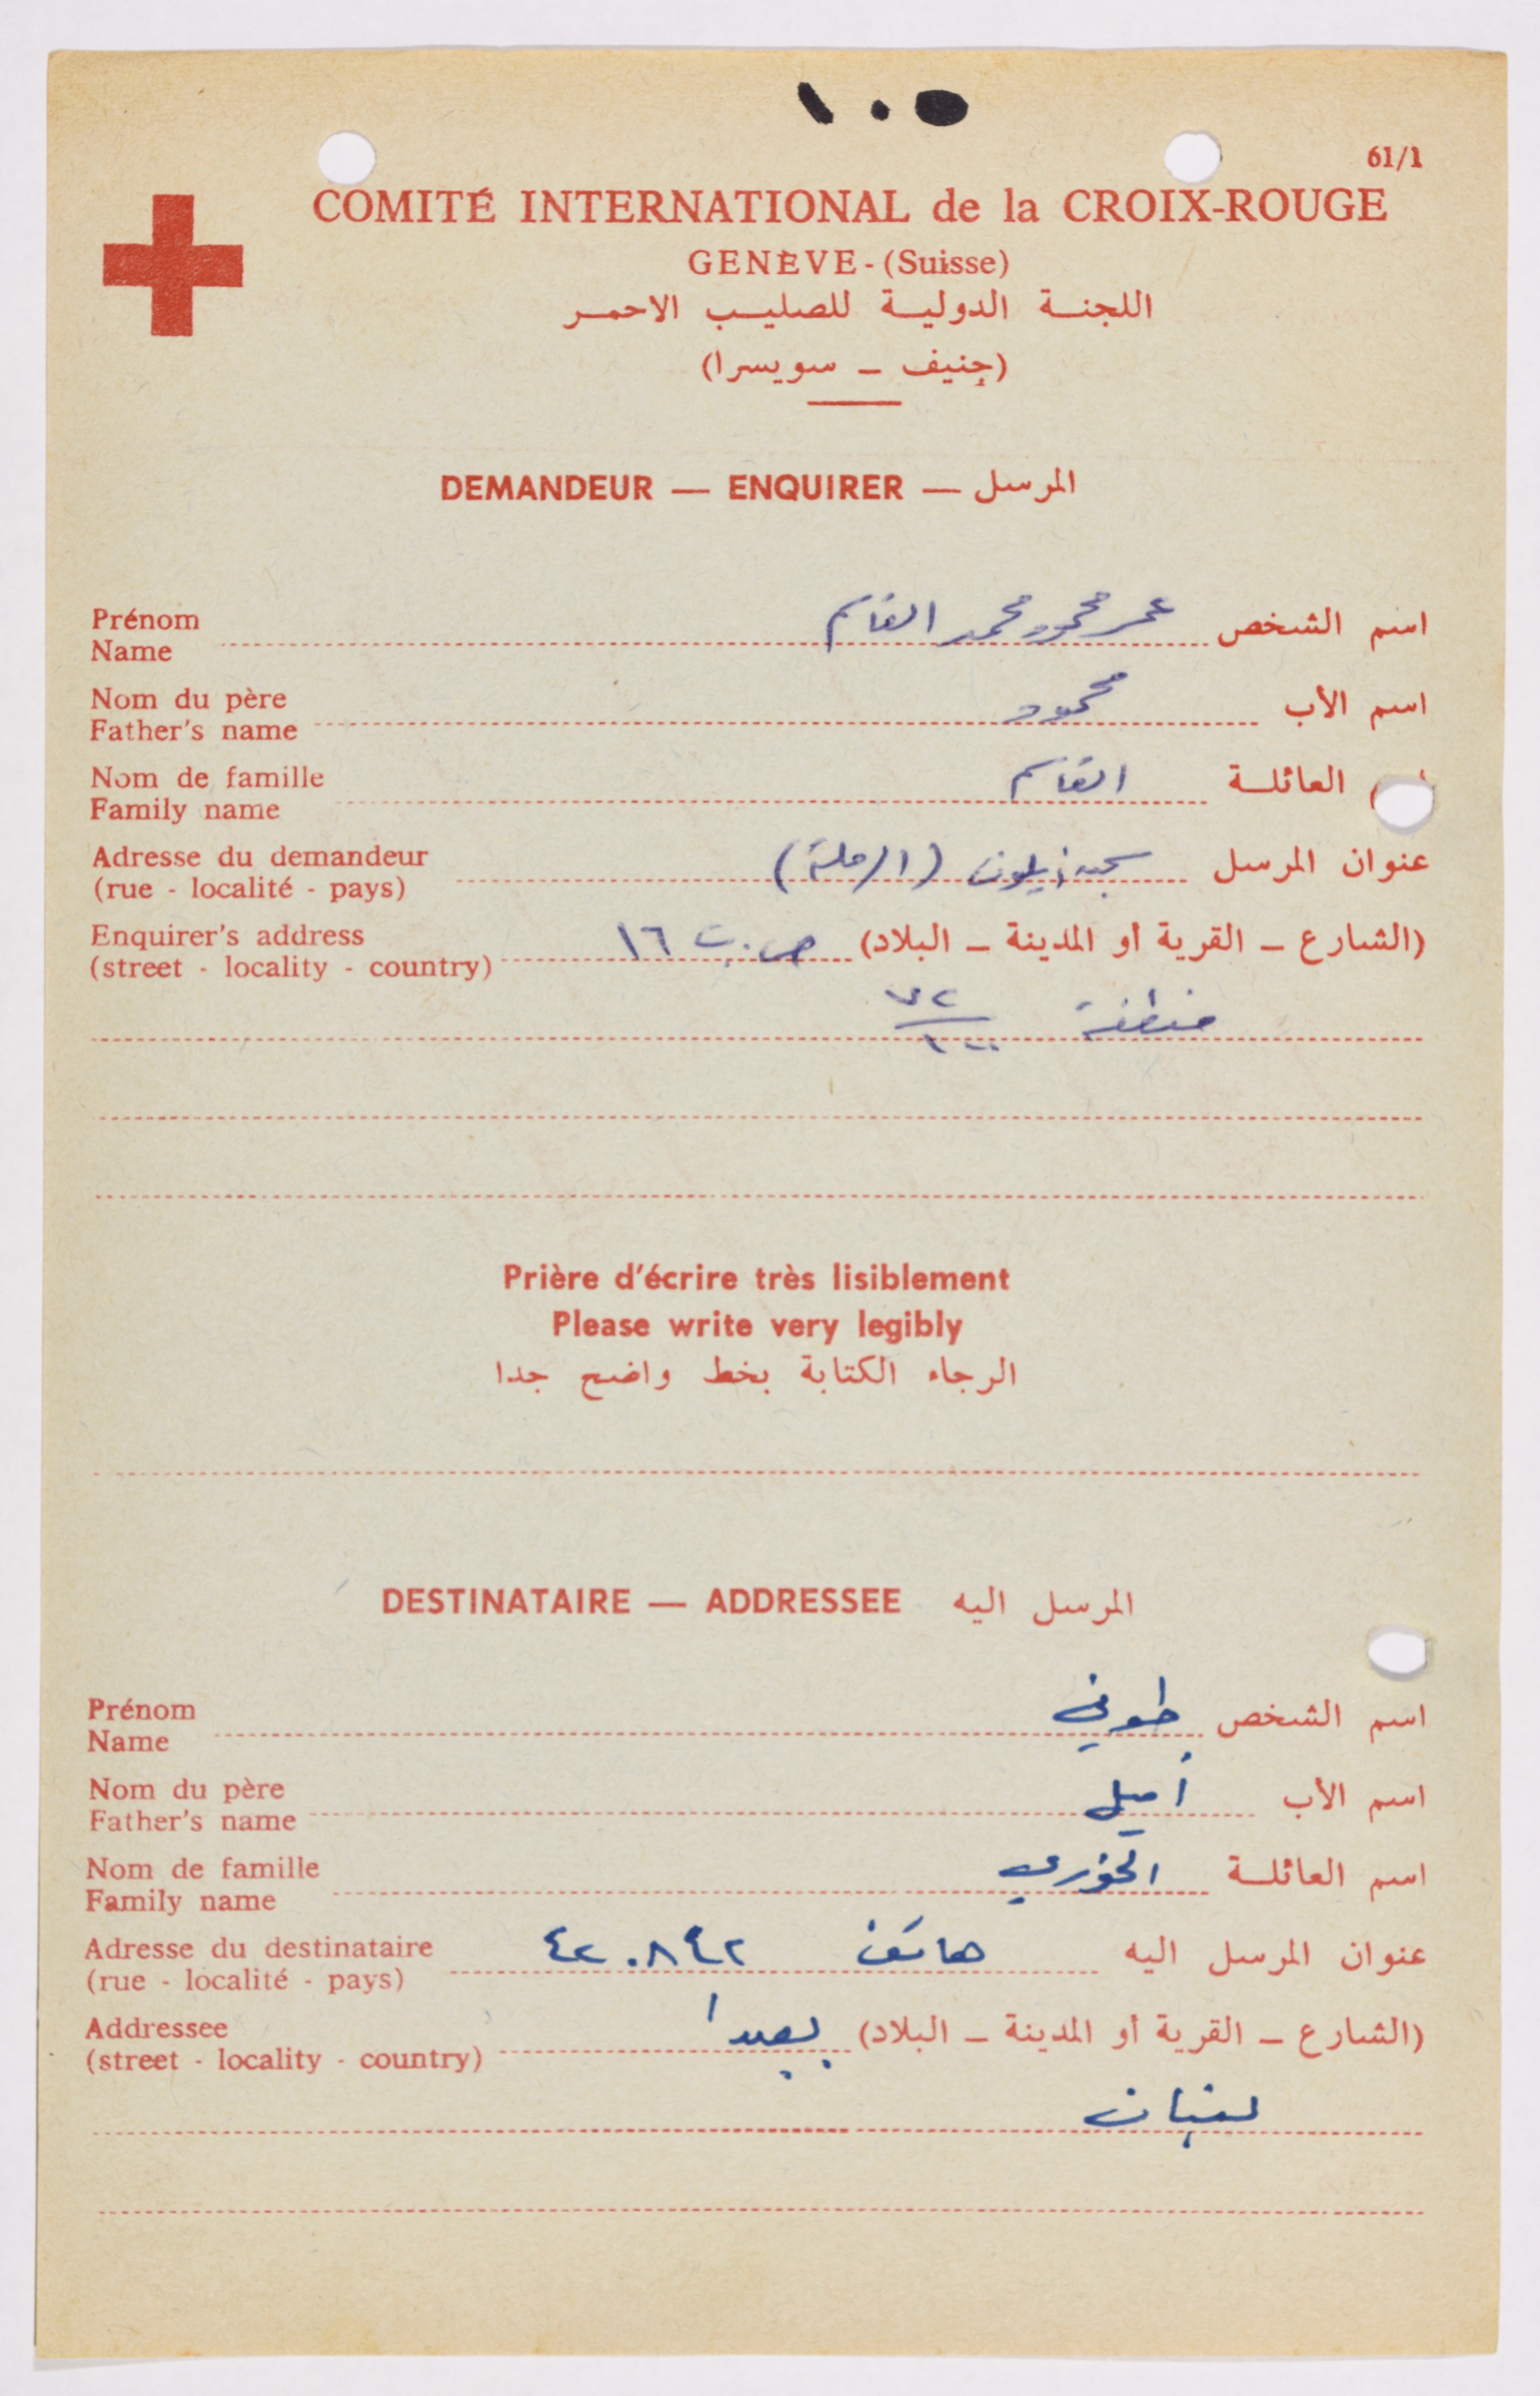 ١٠٥
61/1
COMITÉ INTERNATIONAL de la CROIX-ROUGE
GENÈVE - (Suisse)
اللجنة الدولية للصليب الاحمر
(جنيف – سويسرا)
DEMANDEUR — ENQUIRER — المرسل
Prénom
Name
اسم الشخص عمر محمود محمد القاسم
Nom du père
Father's name
اسم الأب محمود
Nom de famille
Family name
العائلة القاسم
Adresse du demandeur
(rue - localité - pays)
عنوان المرسل سجن أيلون (الرملة)
Enquirer's address
(street - locality - country)
(الشارع – القرية أو المدينة – البلاد) ص.ب ١٦
منطقة
Prière d'écrire très lisiblement
Please write very legibly
الرجاء الكتابة بخط واضح جدا
DESTINATAIRE — ADDRESSEE المرسل اليه
Prénom
Name
اسم الشخص طوني
Nom du père
Father's name
اسم الأب أميل
Nom de famille
Family name
اسم العائلة الخوري
Adresse du destinataire
(rue - localité - pays)
عنوان المرسل اليه هاتف ٤٢٠٨٤٢
Addressee
(street - locality - country)
(الشارع – القرية أو المدينة – البلاد) بعبدا
لبنان